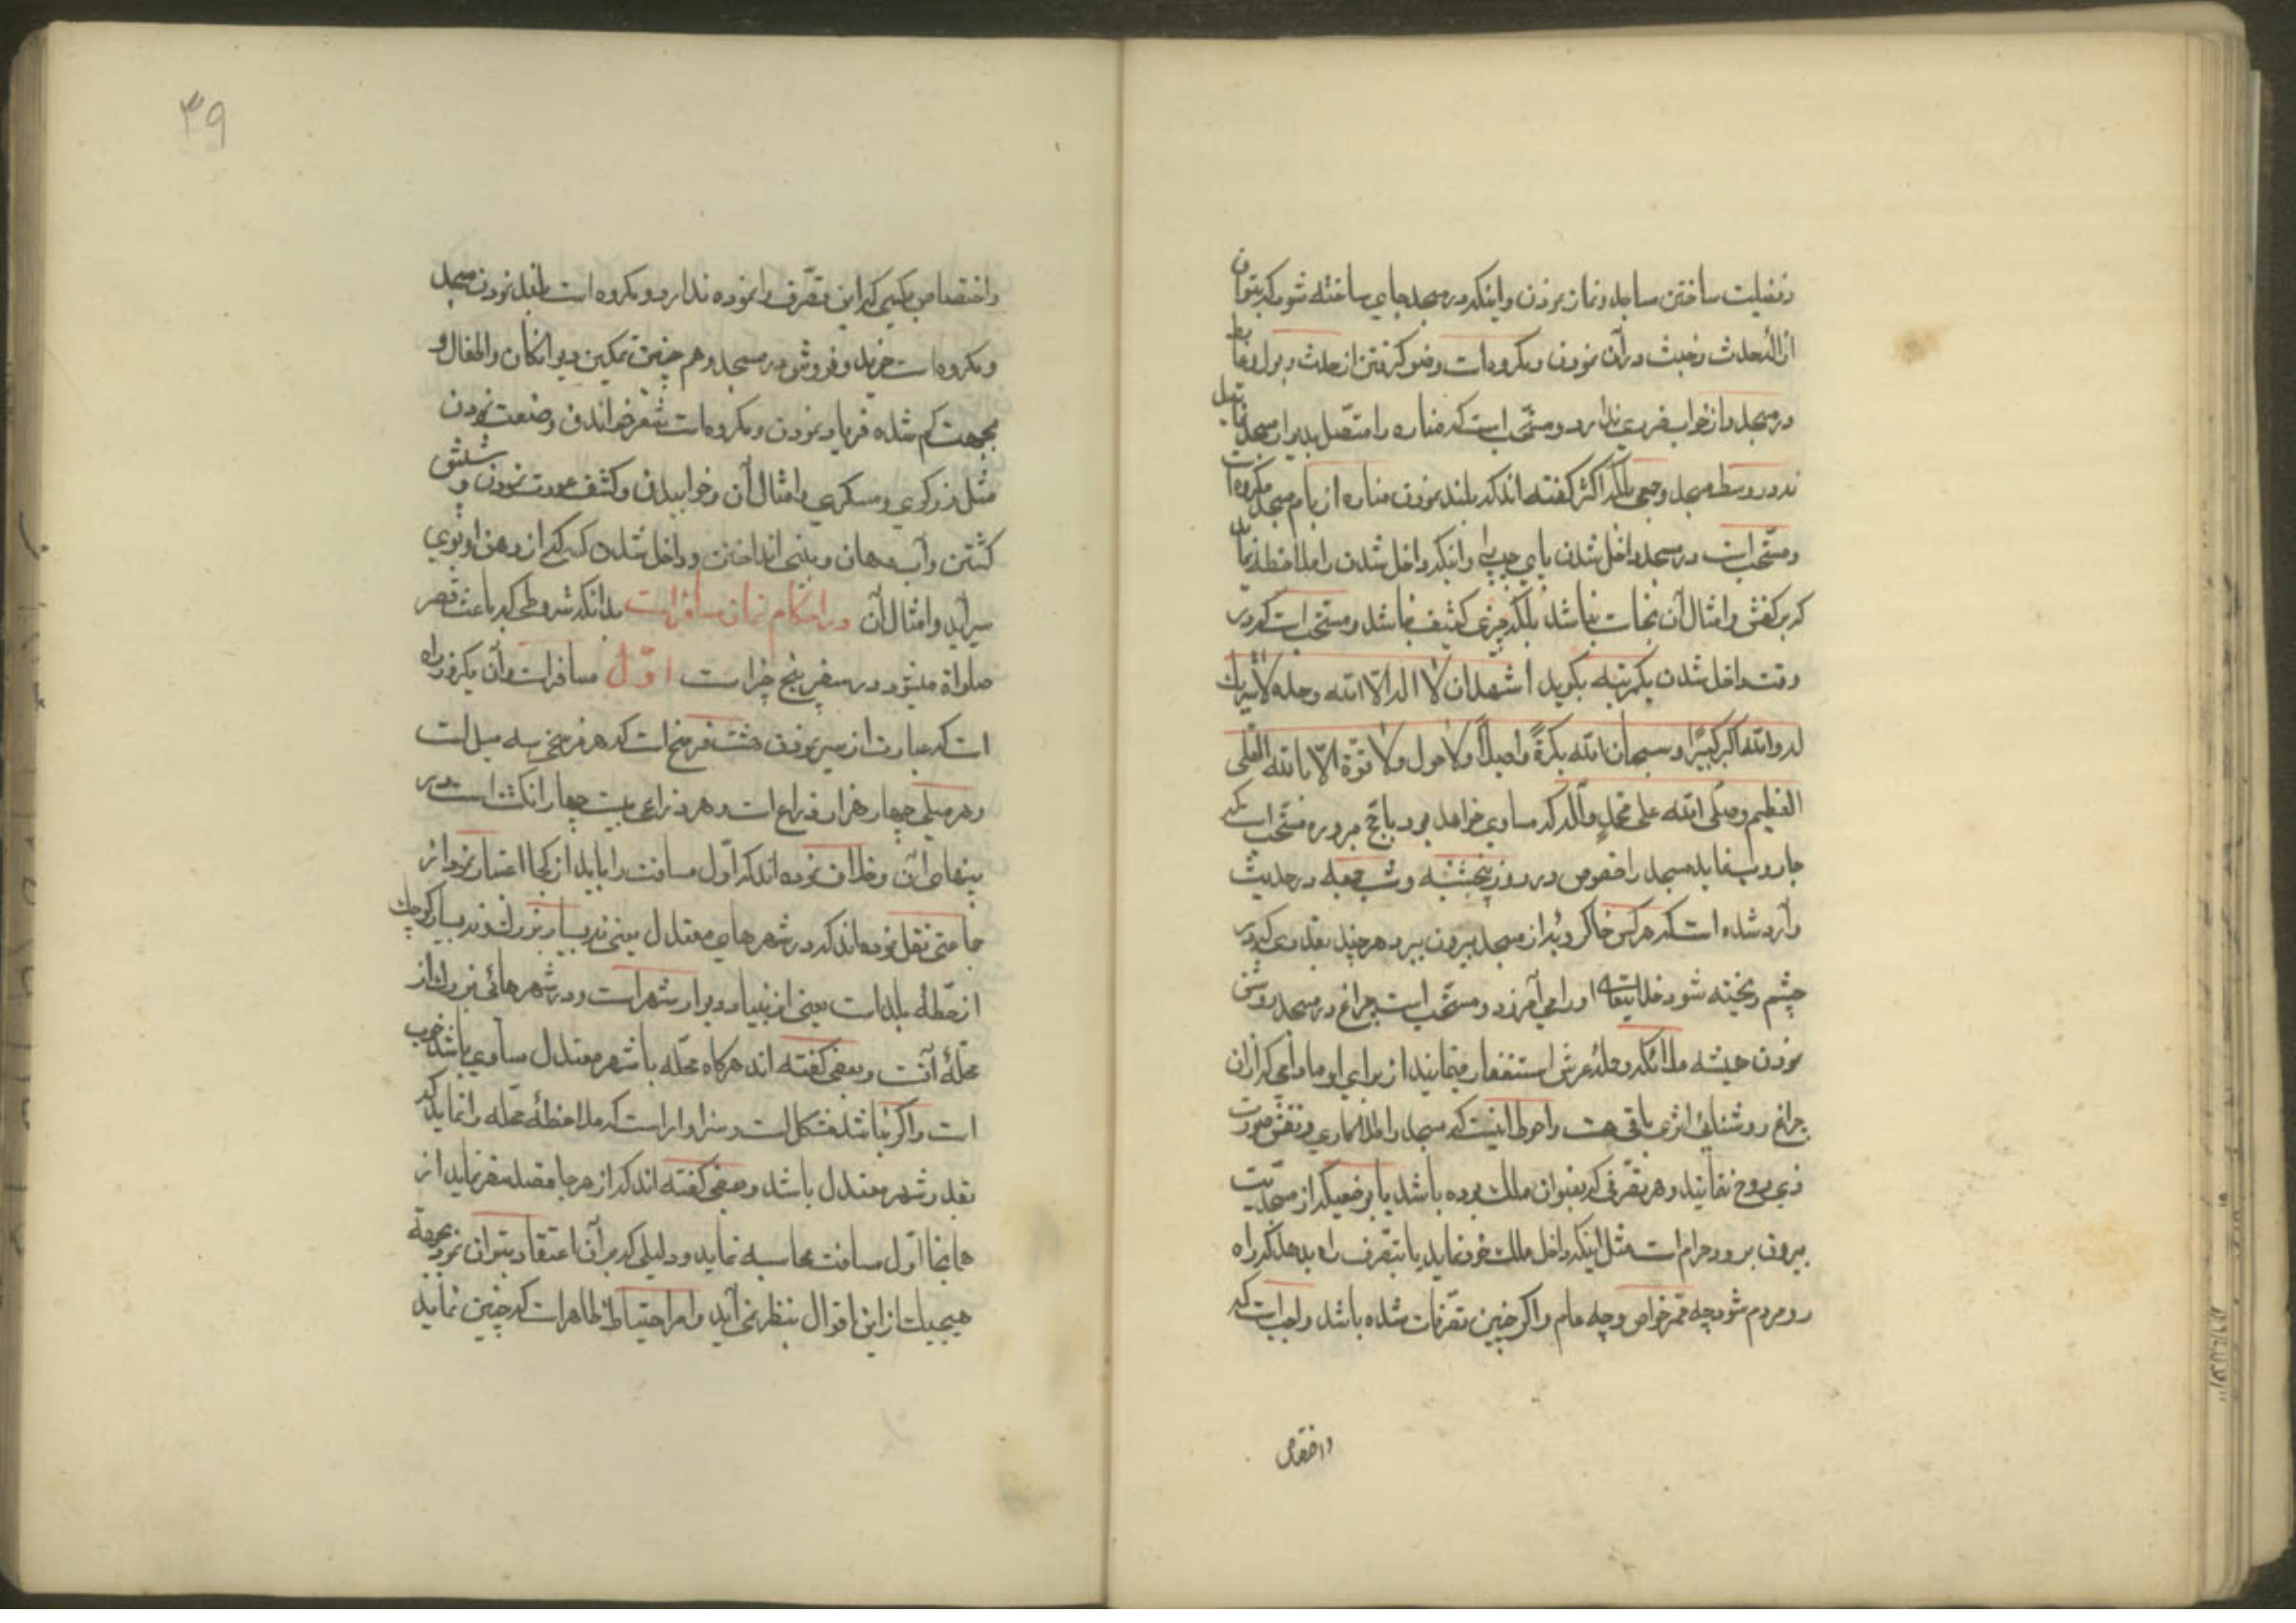 و فضیلت ساختن مساجد و نماز نمودن و اینکه در مسجد جای ساخته شود که بتوان
ازاله حدث و خبث در آن نمودن و مکروه است وضو گرفتن از حدث و بول و غایط
در مسجد و از خواب ضرری ندارد و مستحب است که مناره را متصل بدیوار مسجد نمایند
نه در وسط مسجد و جمعی بلکه اکثر گفته اند که بلند نمودن مناره از بام مسجد مکروه است
و مستحب است در مسجد داخل شدن بپای و اینکه داخل شدن را ملاحظه نماید
که بر کفش و امثال آن نجاست نباشد بلکه چیزی کثیف نباشد و مستحب است که در
وقت داخل شدن یکمرتبه بگوید أشهد ان لا اله الّا الله وحده لا شریك
له و الله اکبر کبیرًا و سبحان الله بکرةً و اصیلًا و لا حول و لا قوّة الّا بالله العلی
العظیم و صلی الله علی محمّدٍ و آله که مساوی خواهد بود با حج مبروره و مستحب است که
جاروب نماید مسجد را خصوص در روز پنجشنبه و شب جمعه در حدیث
وارد شده است که هرکس خاکروبه از مسجد بیرون ببرد هرچند بقدری که در
چشم ریخته شود خدایتعالی او را می آمرزد و مستحب است چراغ در مسجد روشن
نمودن همیشه ملائکه و حملهٔ عرش استغفار مینمایند از برای او مادامی که از آن
چراغ روشنائی اثری باقی هست و احوط اینست که مسجد را طلاکاری و نقش صورت
ذی روح نمانید و هر تصرّفی که بعنوان ملك بوده باشد یا بوضعیکه از مسجدیت
بیرون برود حرام است مثل اینکه داخل ملك خود نماید یا بتصرف راه بدهد که راه
رو مردم شود چه ممر خواص و چه عام و اگر چنین تصرّفات شده باشد واجب است که
و اختصاص
۳۹
و اختصاص بکسی که این تصرّف را نموده ندارد و مکروه است بلند نمودن مسجد
و مکروه است خرید و فروش در مسجد و هم چنین تمکین دیوانگان و اطفال و
بجهت گم شده فریاد نمودن و مکروه است شعر خواندن و صنعت نمودن
مثل زرگری و مسگری و امثال آن و خوابیدن و کشف عورت نمودن و شپش
کشتن و آب دهان و بینی انداختن و داخل شدن کسی که از دهن او بوی
سیر آید و امثال آن در احکام نماز مسافر است بدانکه شروطی که باعث قصر
صلواة میشود در سفر پنج چیز است اوّل مسافت و آن یکروز راه
است که عبارت از سیر نمودن هشت فرسخ است که هر فرسخی سه میل است
و هر میلی چهار هزار ذراع است و هر ذراعی بیست چهار انگشت است در
پهنای آن و خلاف نموده اند که اوّل مسافت را باید از کجا اعتبار نمود از
جامتی نقل نموده اند که در شهرهای معتدل یعنی نه بسیار بزرك و نه بسیار کوچك
از خطّهٔ بلد است یعنی از بنیاد دیوار شهر است و در شهرهائی بزرك از
محلّهٔ آنست و بعضی گفته اند هرگاه محلّه با شهر معتدل مساوی باشد خوب
است و اگر نباشد مشکل است و سزاوار است که ملاحظهٔ محلّه را نماید که
بقدر شهر معتدل باشد و بعضی گفته اند که از هر جا قصد سفر نماید از
همانجا اوّل مسافت محاسبه نماید و دلیلی که بر آن اعتقاد بتوان نمود بجهة
هیچیك از این اقوال بنظر نمی آید و امر احتیاط ظاهر است که چنین نماید